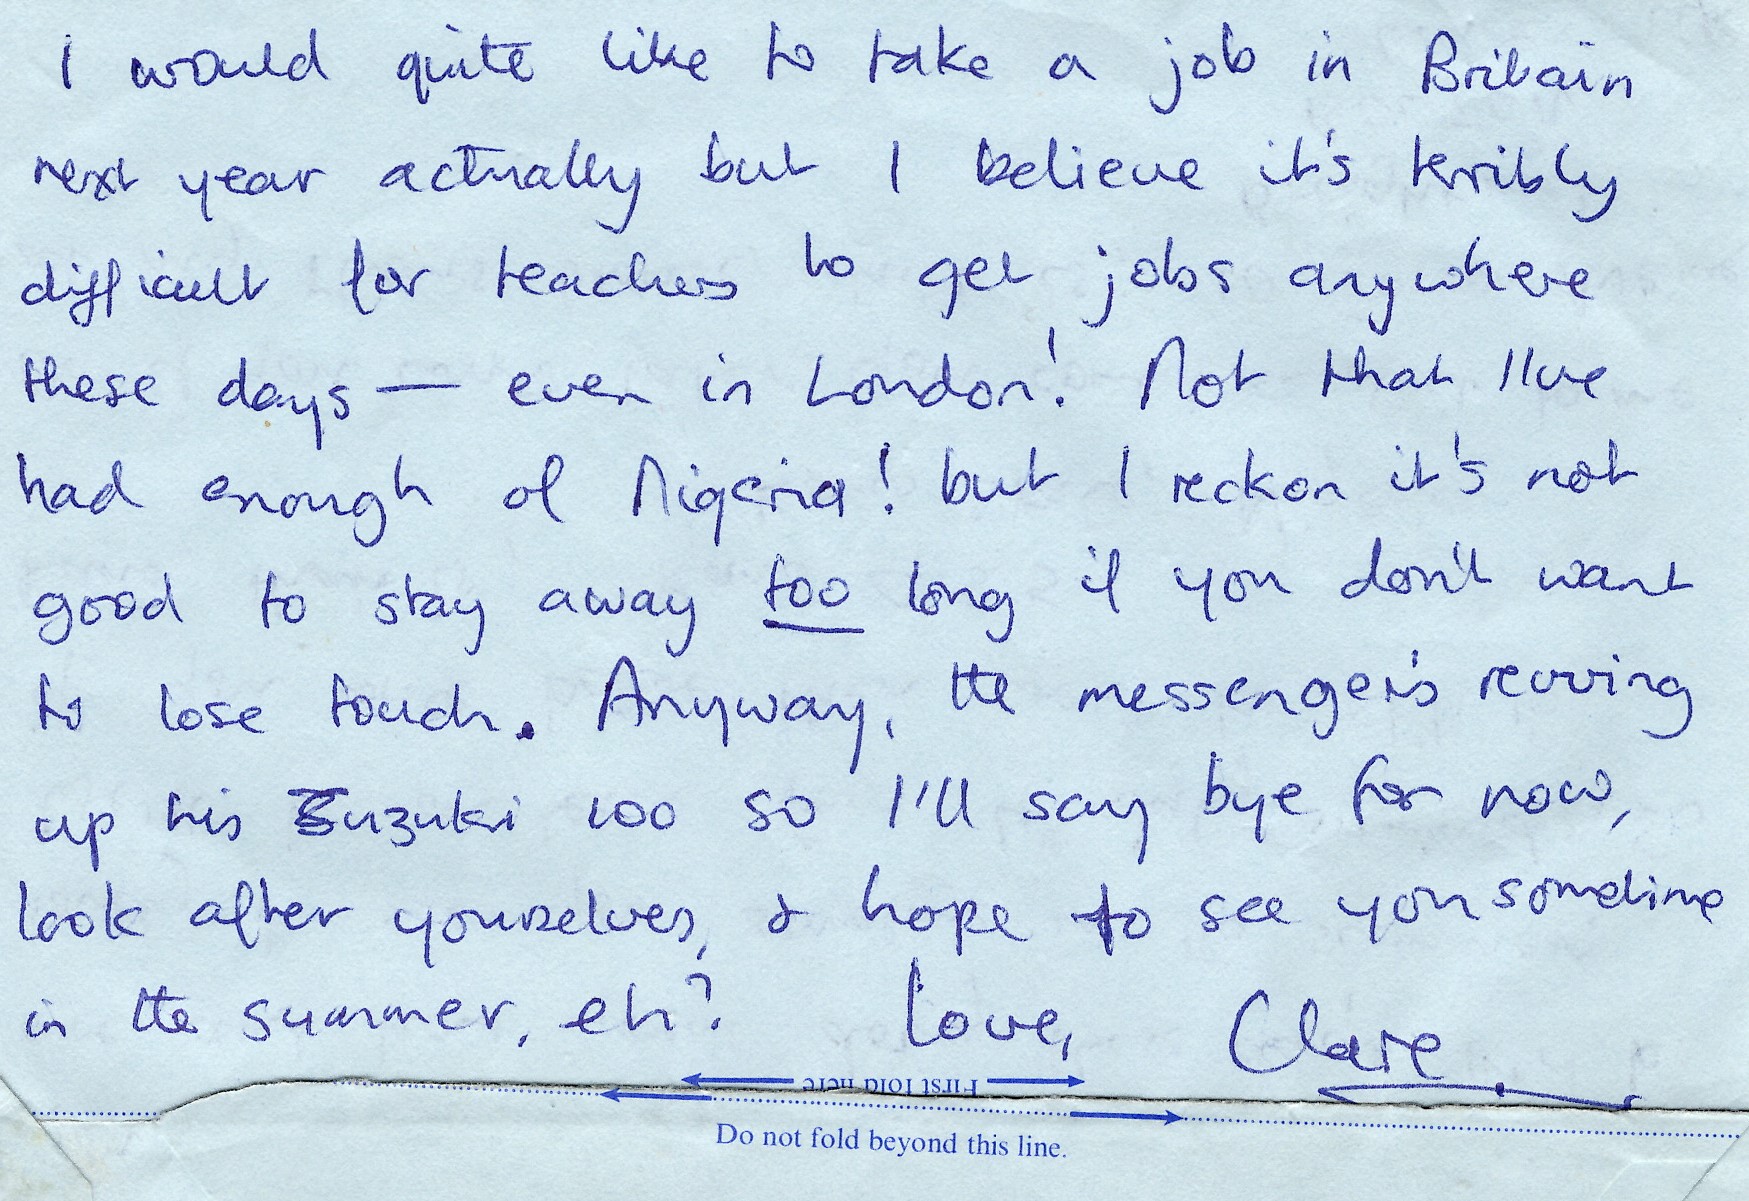 I would quite like to take a job in Britain
next year actually but I believe it's terribly
difficult for teachers to get jobs anywhere
these days — even in London! Not that I've
had enough of Nigeria! but I reckon it's not
good to stay away too long if you don't want
to lose touch. Anyway, the messenger's revving
up his Suzuki 100 so I'll say bye for now,
look after yourselves, & hope to see you sometime
in the summer, eh? Love, Clare.
First fold here
Do not fold beyond this line.